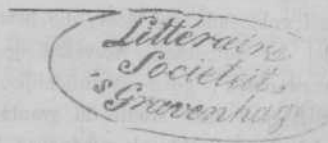 Littéraire
Societeit
's Gravenhage